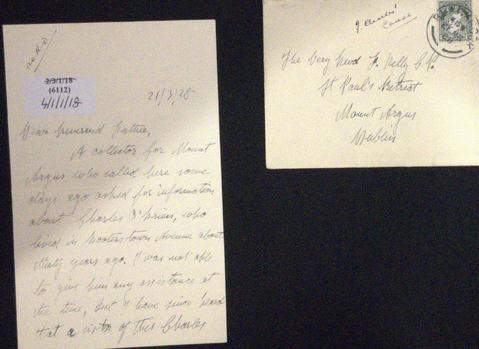 2/3/1/18
(6112)
4/1/1/18
21/3/28
Dear Reverend Father,
A collector for Mount
Argus who called here some
days ago asked for information
about Charles O'Brien, who
lived in Booterstown Avenue about
sixty years ago. I was not able
to give him any assistance at
the time, but I have since heard
that a sister of this Charles
Cause
The Very Revd F. Kelly C.P.
St Paul's Retreat
Mount Argus
Dublin